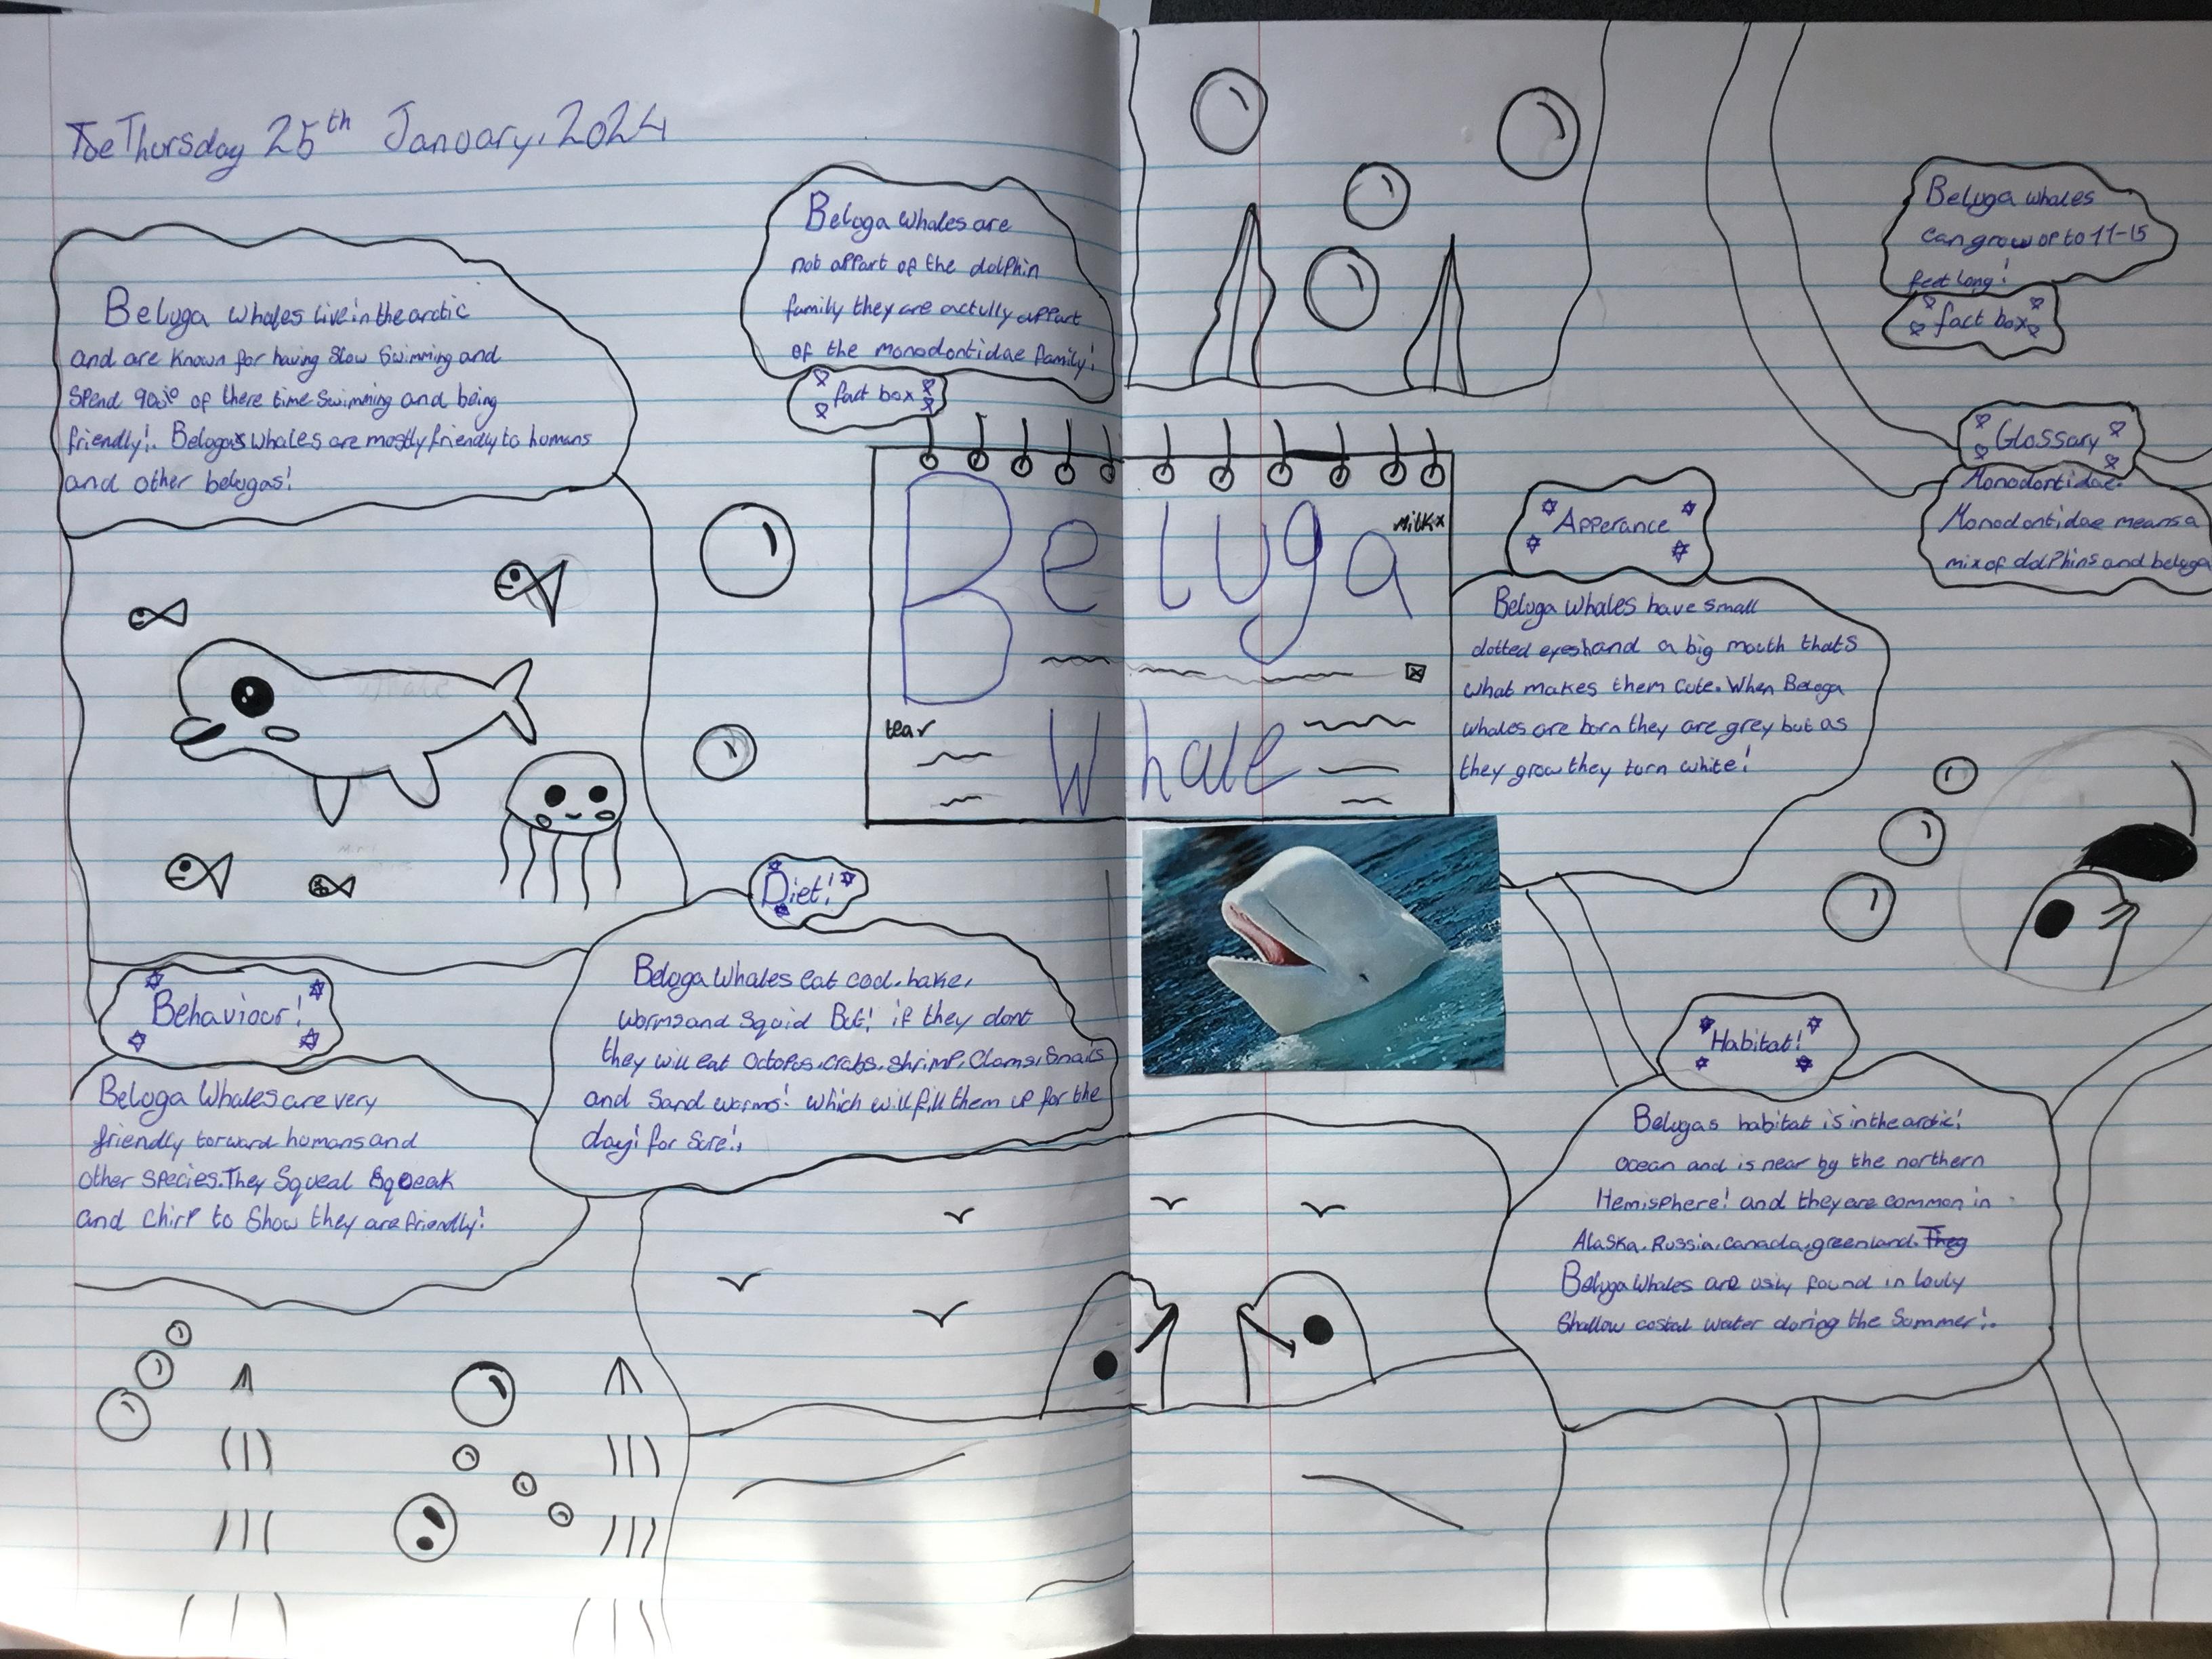 Thursday 25th January, 2024
Beluga whales live in the arctic
and are known for having slow swimming and
spend 90% of there time swimming and being
friendly!. Belugas whales are mostly friendly to humans
and other belugas!
Beluga whales are
not appart of the dolphin
family they are actully appart
of the monodontidae family!
fact box
Beluga
Milk
tear
Whale
Behaviour!
Beluga Whales are very
friendly torward humans and
other species. They Squeal Squeak
and chirp to show they are friendly!
Diet!
Beluga Whales eat cod, hake,
worms and squid But! if they dont
they will eat Octopus, crabs, shrimp, Clams, Snails
and Sand worms! which will fill them up for the
day! for sure!,
Apperance
Beluga Whales have small
dotted eyes and a big mouth thats
what makes them cute. When Beluga
whales are born they are grey but as
they grow they turn white!
Beluga whales
can grow up to 11-15
feet long!
fact box
Glossary
Monodontidae.
Monodontidae means a
mix of dolphins and beluga
Habitat!
Belugas habitat is in the arctic!
ocean and is near by the northern
Hemisphere! and they are common in
Alaska, Russia, canada, greenland. They
Beluga Whales are usly found in louly
Shallow costal water during the Summer!.